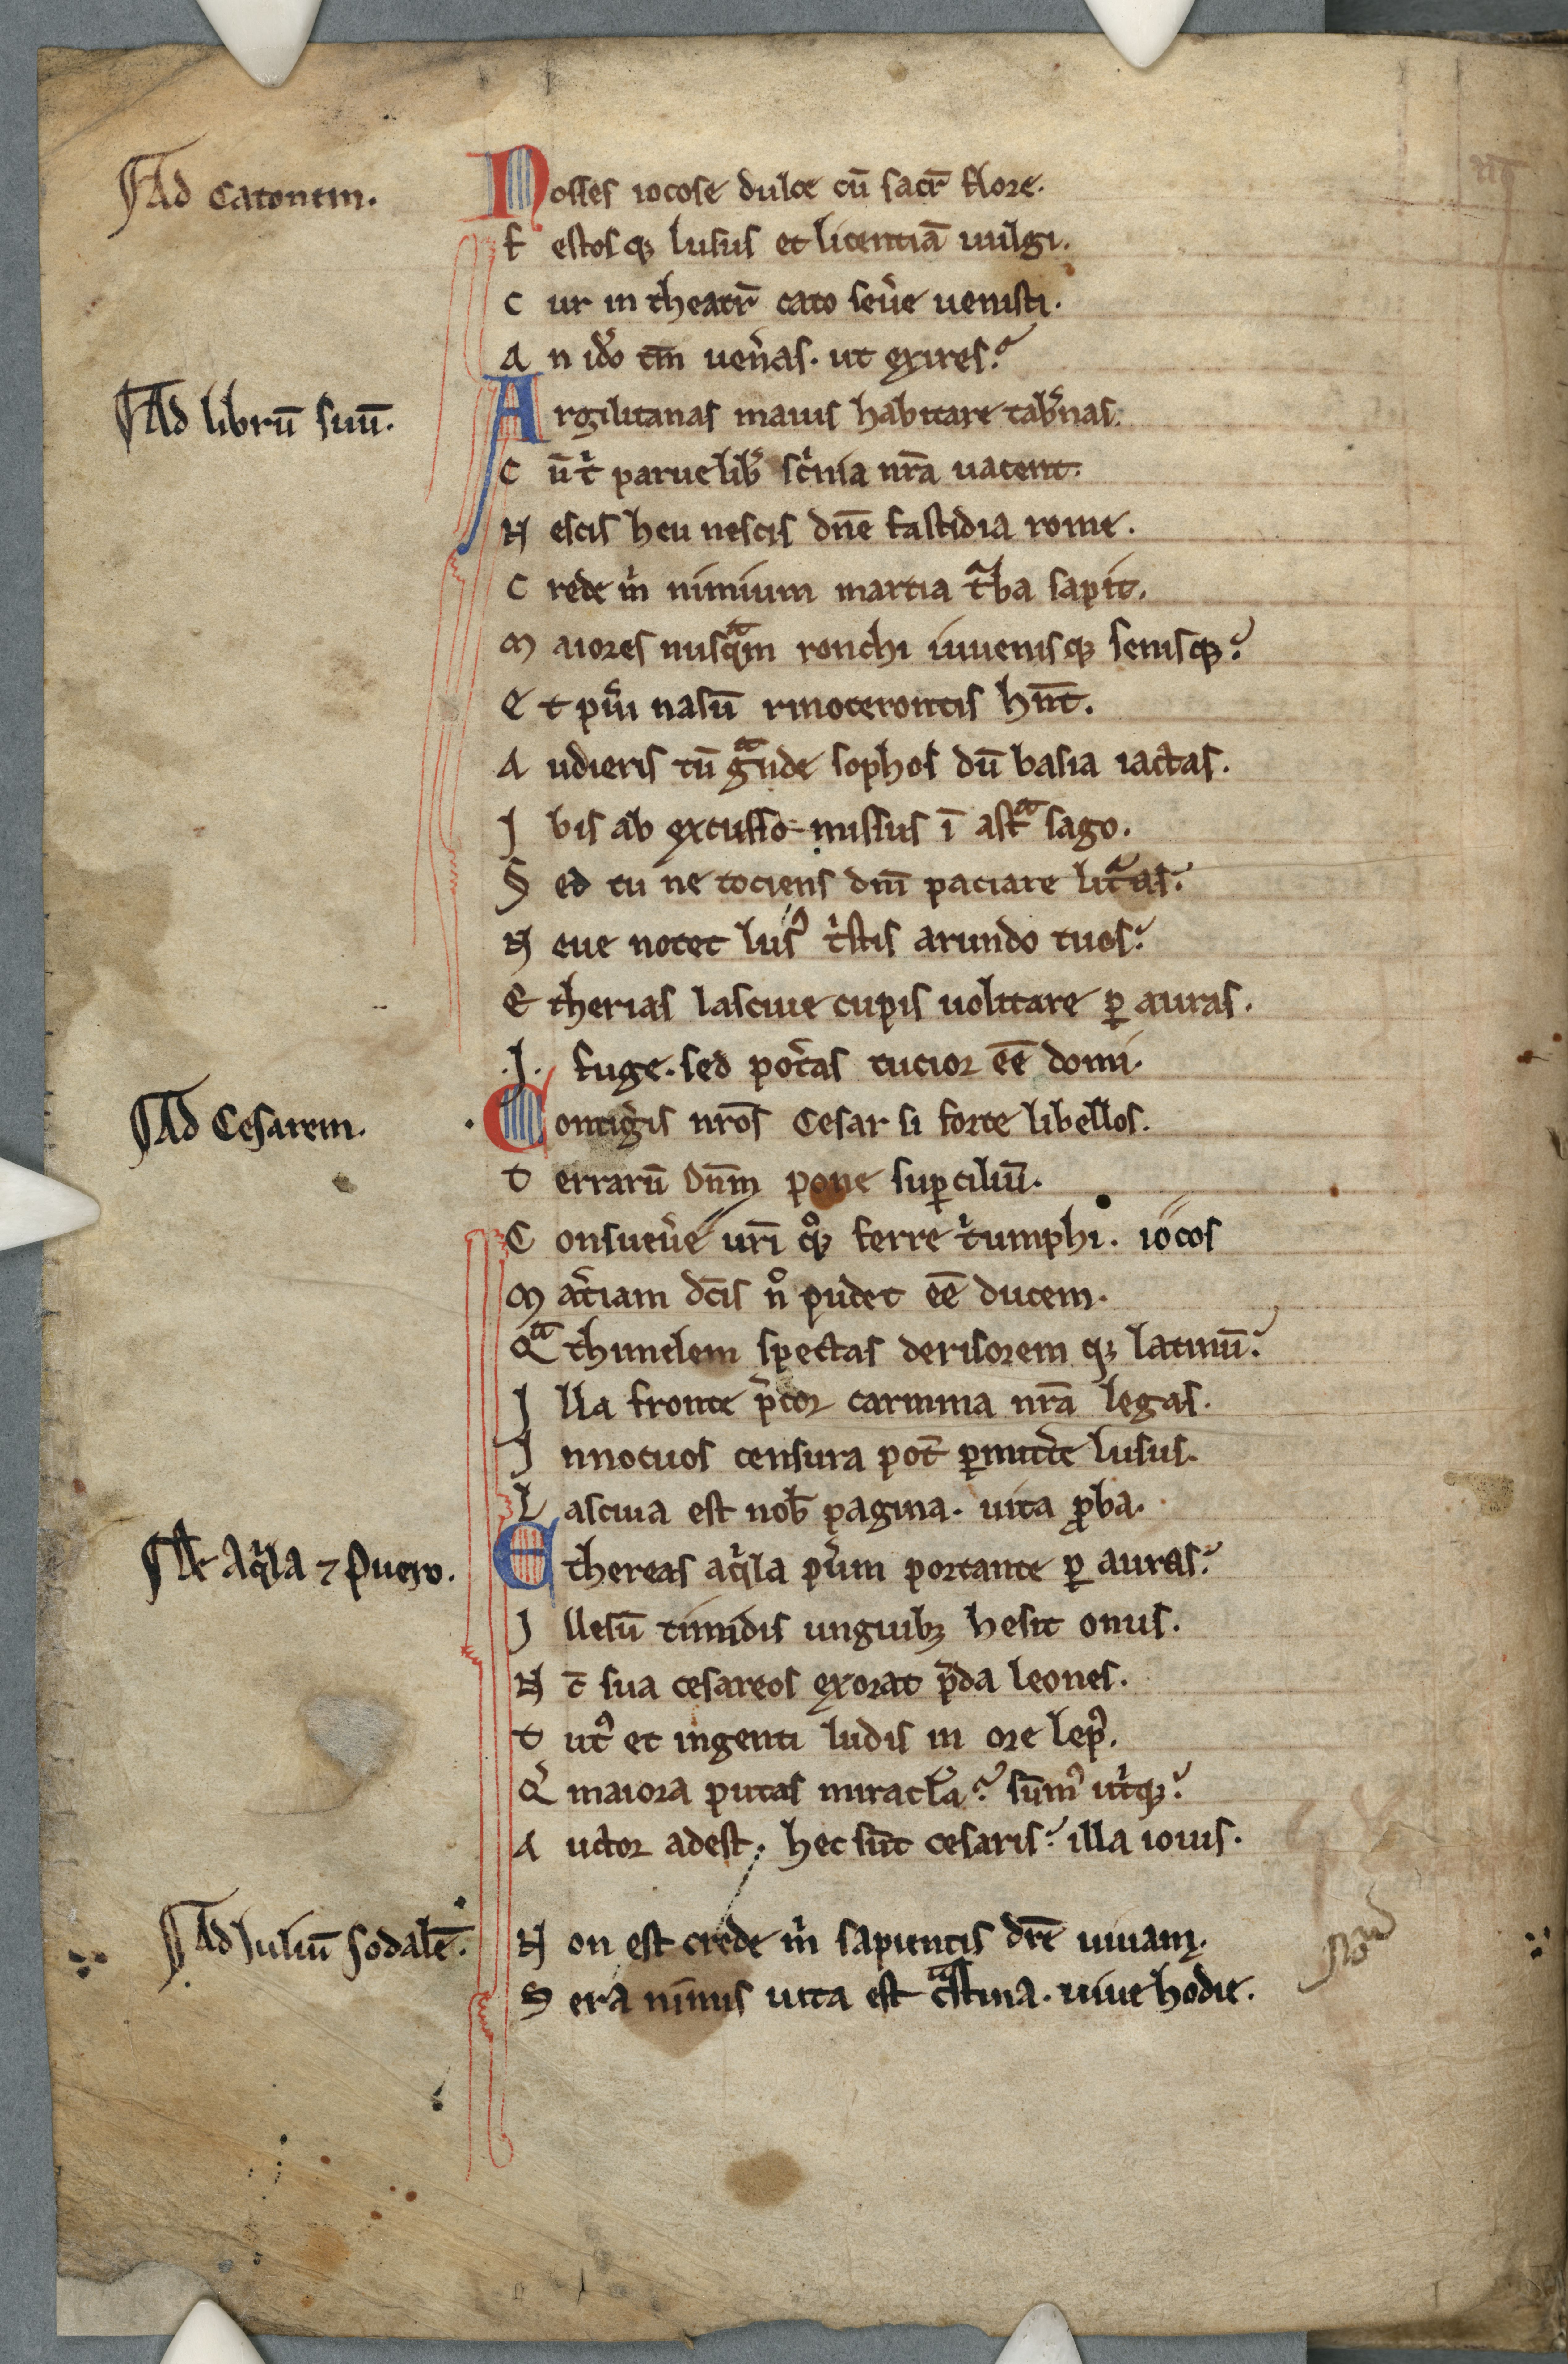 ¶Ad Catonem.
Nosses iocose dulce cū sacr̄ flore.
F estosqꝫ lusus et licentiā uulgi.
C ur in theatr̄ cato seu͛e uenisti.
A n iđo tm̄ uen͛as. ut exires?
¶Ad librū suū.
Argilitanas mauis habitare tab͛nas.
C ū tͥ parue lib͛ sc͛nia nr̄a uacent.
N escis heu nescis dn̄e fastidia rome.
C rede m̍ nimium martia tᷓba sapit.
M aiores nusqᷓm ronchi iuuenisqꝫ senisqꝫ?
E t pu͛i nasū rinocerontis hn̄t.
A udieris cū gᷓnde sophos dū basia iactas.
I bis ab excusso missus ī astᷓ sago.
S ed tu ne tociens dnī paciare litᷓas?
N eue notet lus᷒ tͥstis arundo tuos?
E therias lasciue cupis uolitare ꝑ auras.
.I. fuge. sed pot͛as tucior eē domi.
¶Ad Cesarem.
Contig͛is nr̄os Cesar si forte libellos.
T errarū dn̄m pone suꝑciliū.
C onsueu͛e ur̄i qͦꝫ ferre tͥumphi. iocos
M at͛iam dc̄is nͦ pudet eē ducem.
Qᷓ thimelem spectas derisorem qꝫ latinū?
I lla fronte p͛cor carmina nr̄a legas.
I nnocuos censura pot̄ ꝑmitt͛e lusus.
L asciua est nob̄ pagina. uita ꝓba.
¶De Aqͥla ⁊ Puero.
Ethereas aqͥla pu͛um portante ꝑ auras?
I llesū timidis unguibꝫ hesit onus.
N c̄ sua cesareos exorat p̄da leones.
T ut᷒ et ingenti ludis in ore lep᷒.
Qͥ maiora putas miracl̄a? sūm᷒ utͥqꝫ?
A uctor adest. hec sūt cesaris? illa iouis.
¶Ad Iuliū sodalē.
N on est crede m̍ sapientis dr̄e uiuam.
S era nimis uita est cᷓstina. uiue hodie.